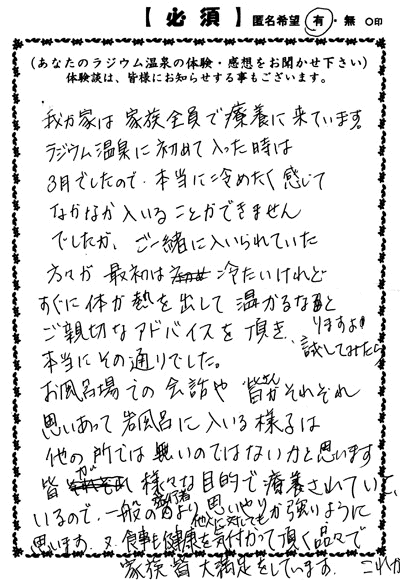 【必須】 匿名希望 有・無 ○印
(あなたのラジウム温泉の体験・感想をお聞かせ下さい)
体験談は、皆様にお知らせする事もございます。
我が家は家族全員で療養に来ています。
ラジウム温泉に初めて入った時は
3月でしたので、本当に冷めたく感じて
なかなか入いることができません
でしたが、ご一緒に入いられていた
方々が最初は冷たいけれど
すぐに体が熱を出して温かるなると
ご親切なアドバイスを頂き、
りますよ
試してみたら
本当にその通りでした。
お風呂場での会話や皆さんがそれぞれ
思いあって岩風呂に入る様子は
他の所では無いのではない力と思います
皆が様々な目的で療養されていて
いるので、一般の
旅行者
より思いやりが強いように
他人に対しても
思います。又、食事も健康を気付かって頂く品々で
家族皆大満足をしています。
これか